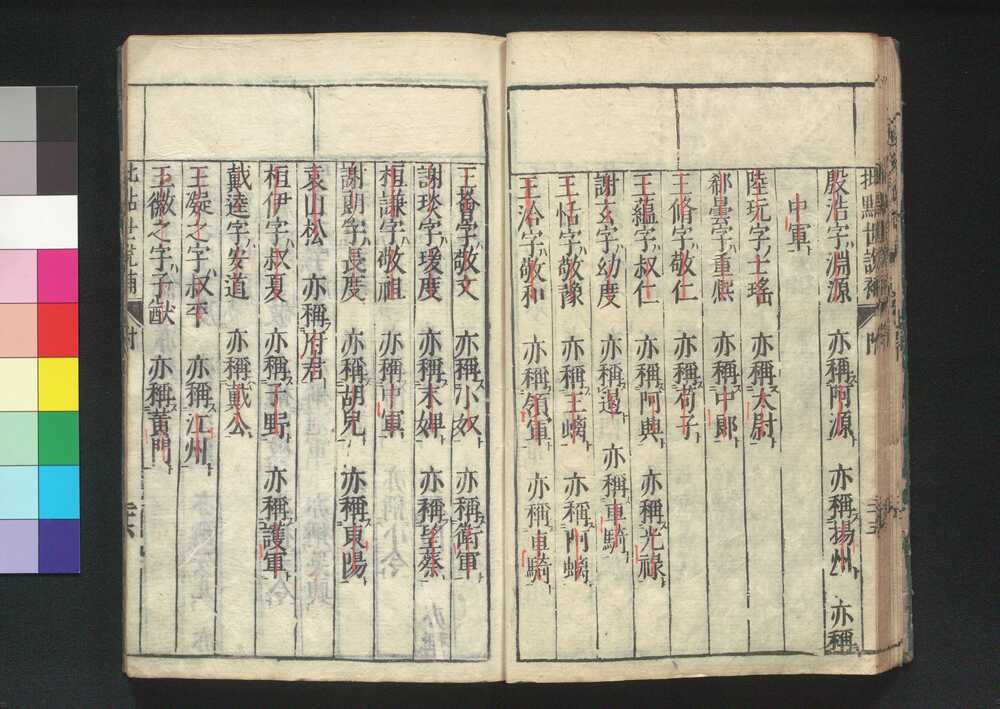 殷浩字淵源 亦稱阿源 亦稱揚州 亦稱
中軍
陸玩字士瑤 亦稱太尉
郗曇字重熈 亦稱中郎
王脩字敬仁 亦稱苟子
王蘊字叔仁 亦稱阿興 亦稱光祿
謝玄字幼度 亦稱遏 亦稱車騎
王恬字敬豫 亦稱王螭 亦稱阿螭
王洽字敬和 亦稱領軍 亦稱車騎
王薈字敬文 亦稱小奴 亦稱衛軍
謝琰字瑗度 亦稱末婢 亦稱望蔡
桓謙字敬祖 亦稱中軍
謝朗字長度 亦稱胡兒 亦稱東陽
袁山松 字 亦稱府君
桓伊字叔夏 亦稱子野 亦稱護軍
戴逵字安道 亦稱戴公
王凝之字叔平 亦稱江州
王徽之字子猷 亦稱黃門